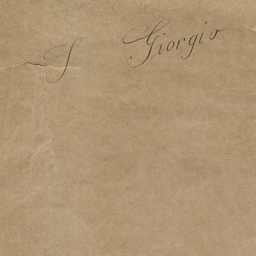 S Giorgio